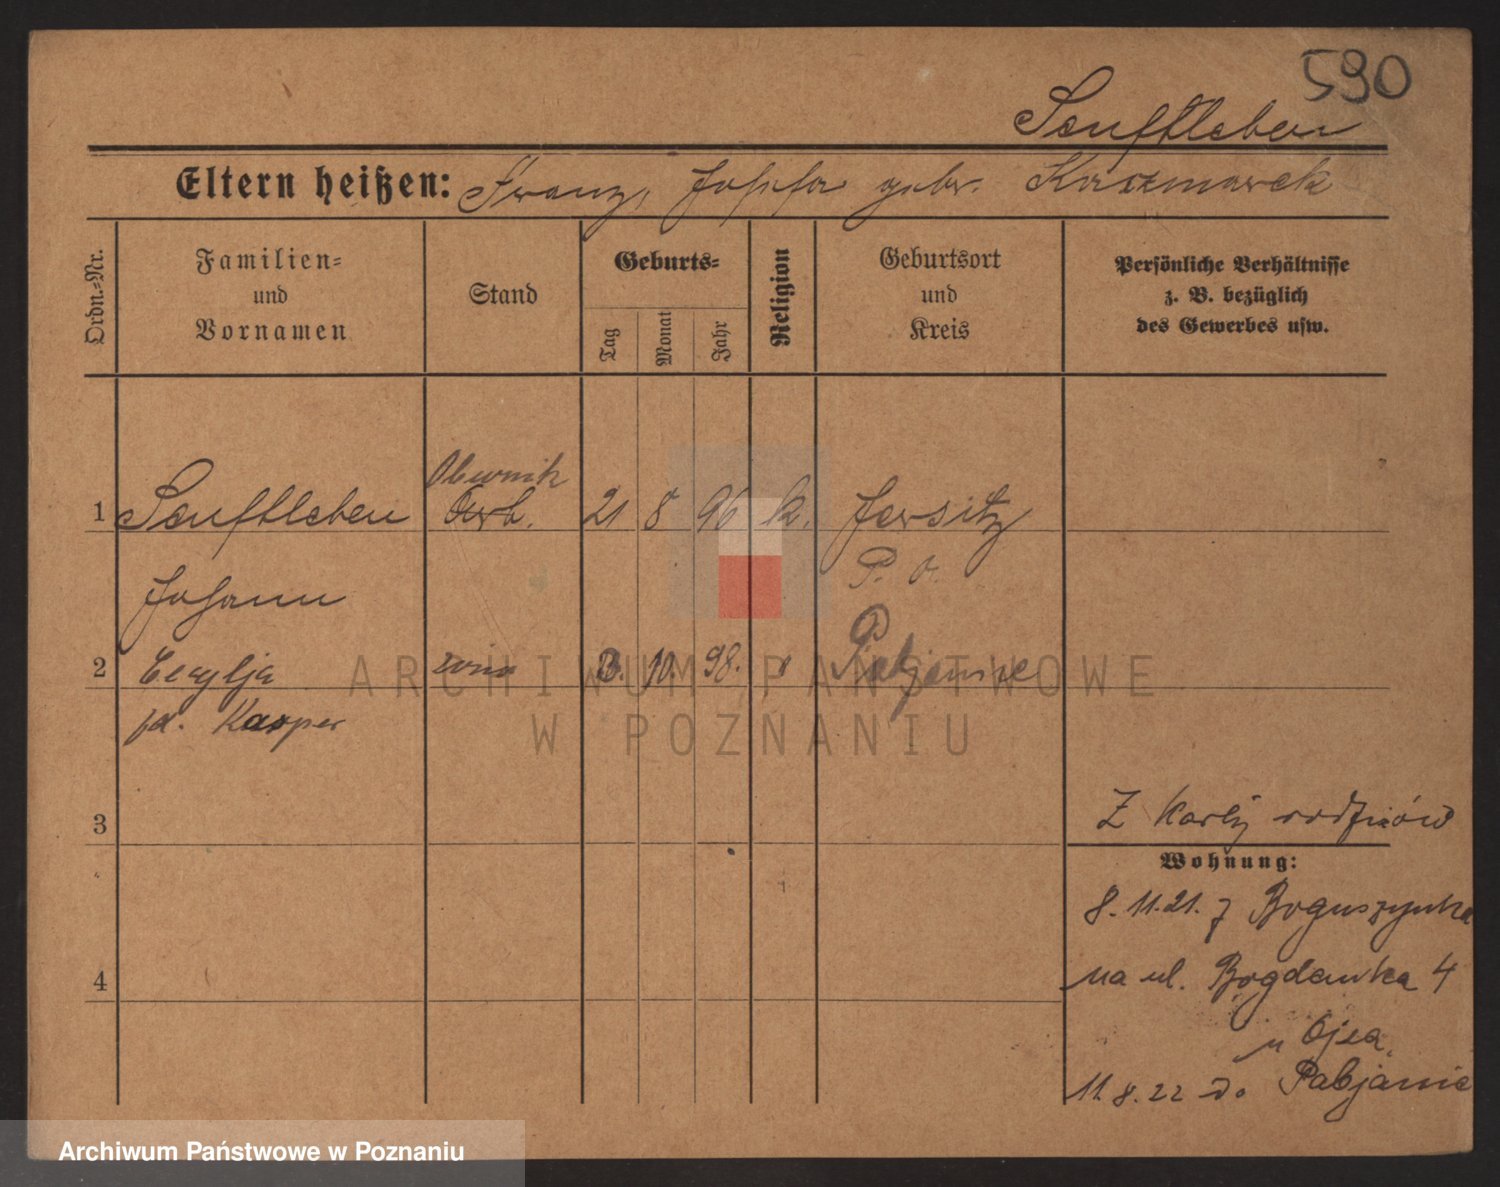 590
Senftleben
Eltern heißen: Franz, Josefa gebr. Kaczmarek
Ordn.-Nr.
Familien- und Vornamen
Stand
Geburts-
Tag
Monat
Jahr
Religion
Geburtsort und Kreis
Persönliche Verhältnisse
z. B. bezüglich
des Gewerbes usw.
1 Senftleben Arb. 21 8 96 k. Jersitz
Johann P. O.
2 10. 98. Pabjanice
Kasper
3
Z karty rodziców
Wohnung:
8.11.21. z Boguszynka
4
na ul. Bogdanka 4
u Ojca
11.8.22 do Pabjanic
ARCHIWUM PAŃSTWOWE
W POZNANIU
Archiwum Państwowe w Poznaniu